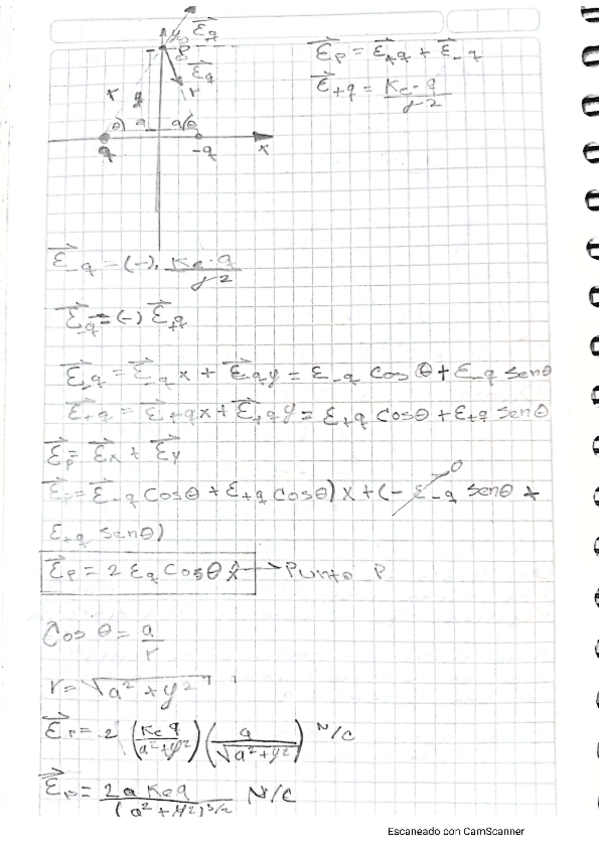 y P E⃗q
E⃗p = E⃗+q + E⃗-q
E⃗q
E⃗+q = Ke·q / r²
r y r
θ a a θ
q -q x
E⃗-q = (-). Ke·q / r²
E⃗-q = (-) E⃗+q
E⃗-q = E⃗-q x + E⃗-q y = E-q Cos θ + E-q Sen θ
E⃗+q = E⃗+q x + E⃗+q y = E+q Cos θ + E+q Sen θ
E⃗p = E⃗x + E⃗y
E⃗p = E⃗-q Cos θ + E+q Cos θ) x + (- E-q sen θ + 0
E+q sen θ)
E⃗p = 2 Eq Cos θ x̂ → Punto P
Cos θ = a / r
r = √a² + y²
E⃗p = 2 (Ke q / a² + y²) (a / √a² + y²) N/C
E⃗p = 2a Ke q / (a² + y²)^3/2 N/C
Escaneado con CamScanner